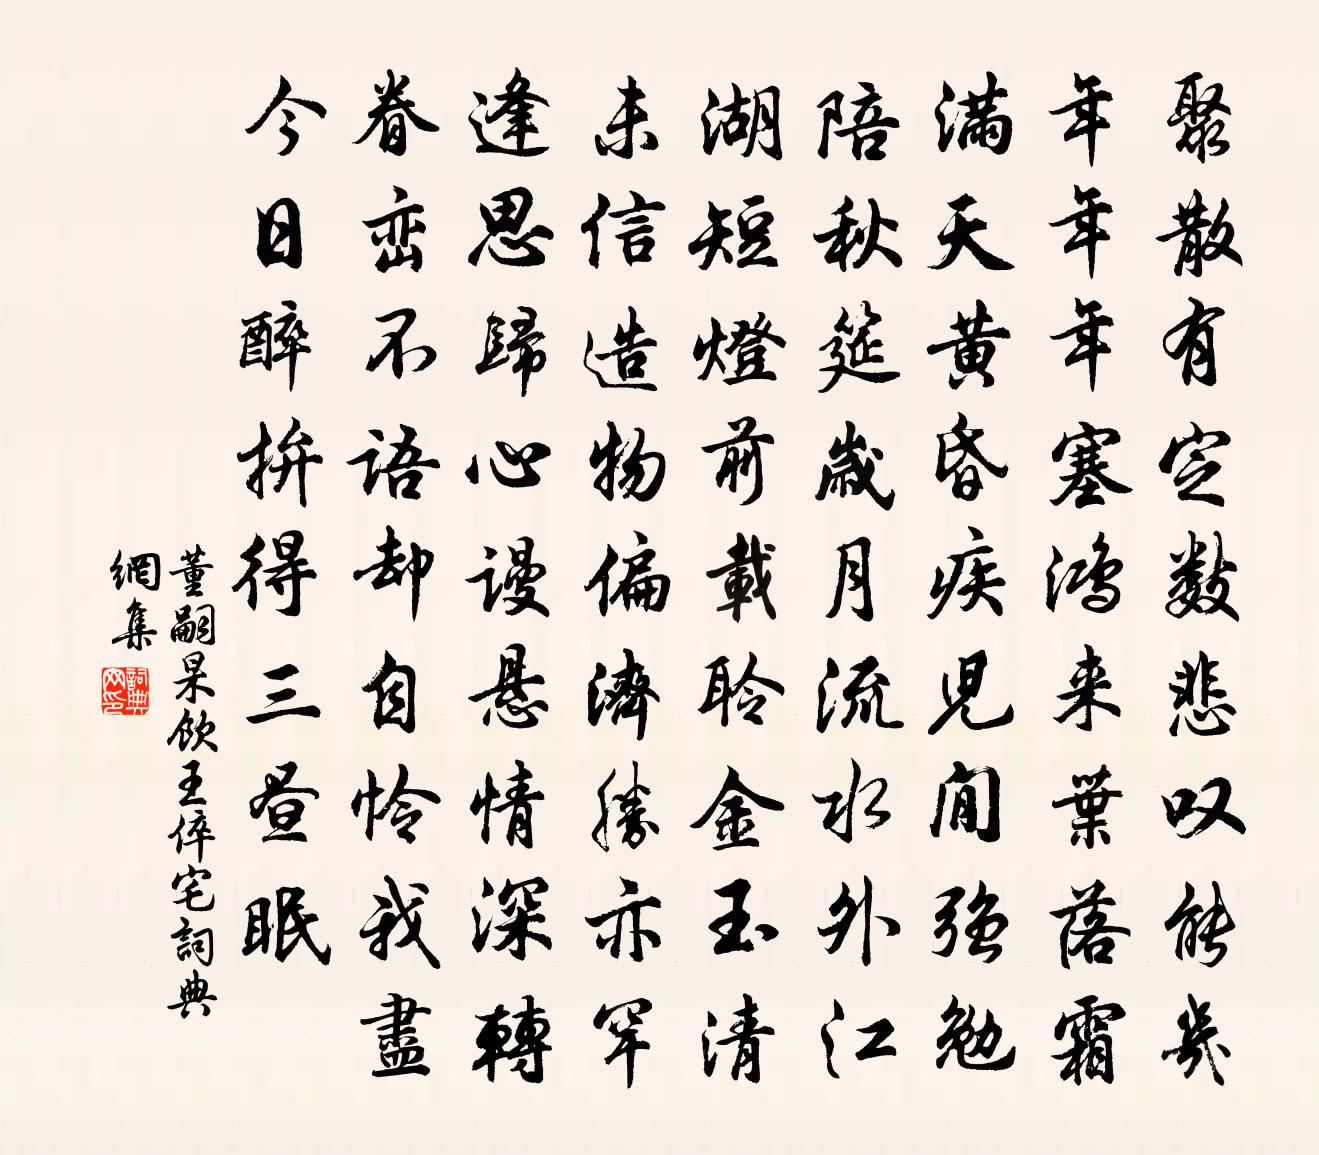 聚散有定數悲叹能幾
年年年塞鴻来葉落霜
滿天黄昏疾児間強勉
陪秋筵歲月流水外江
湖短燈前載聆金玉清
未信造物偏濟勝亦罕
逢思歸心謾悬情深轉
眷峦不語却自怜我盡
今日醉拚得三昼眠
董嗣杲飲王倅宅詞典
網集
詞典網印